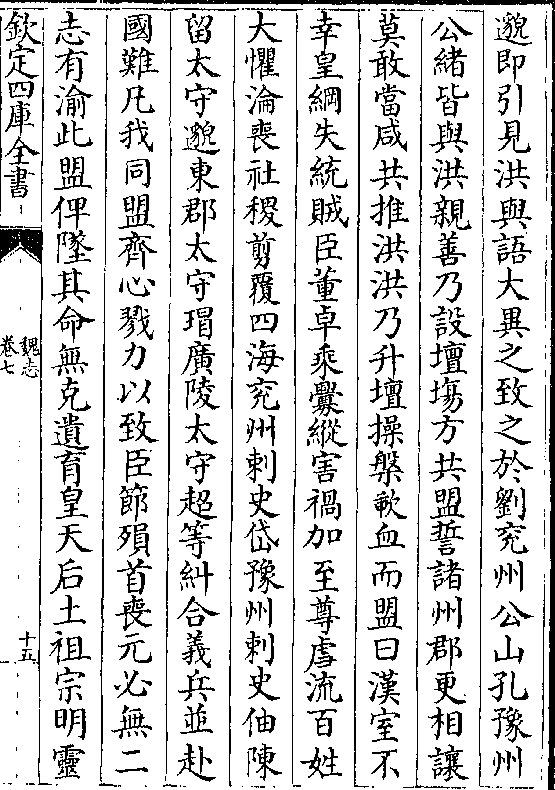 邈即引見洪與語大異之致之於劉兖州公山孔豫州
公緒皆與洪親善乃設壇塲方共盟誓諸州郡更相讓
莫敢當咸共推洪洪乃升壇操槃歃血而盟曰漢室不
幸皇綱失統賊臣董卓乘釁縱害禍加至尊虐流百姓
大懼淪喪社稷剪覆四海兖州刺史岱豫州刺史伷陳
留太守邈東郡太守瑁廣陵太守超等糾合義兵並赴
國難凡我同盟齊心戮力以致臣節殞首喪元必無二
志有渝此盟俾墜其命無克遺育皇天后土祖宗明靈
欽定四庫全書
魏志
卷七
十五